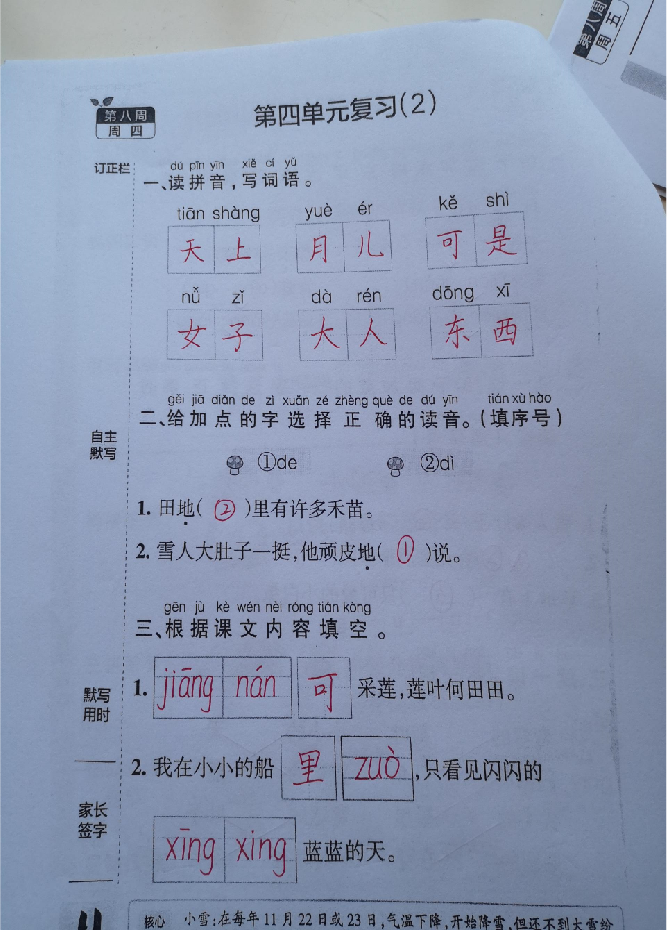 第八周
周五
第八周
周四
第四单元复习(2)
订正栏
dú pīn yīn xiě cí yǔ
一、读拼音,写词语。
tiān shàng yuè ér kě shì
天上 月儿 可是
nǚ zǐ dà rén dōng xī
女子 大人 东西
gěi jiā diǎn de zì xuǎn zé zhèng què de dú yīn tián xù hào
二、给加点的字选择正确的读音。(填序号)
自主
默写
①de ②dì
1. 田地(②)里有许多禾苗。
2. 雪人大肚子一挺,他顽皮地(①)说。
gēn jù kè wén nèi róng tián kòng
三、根据课文内容填空。
默写
用时
1. jiāng nán 可 采莲,莲叶何田田。
2. 我在小小的船 里 zuò ,只看见闪闪的
家长
签字
xīng xing 蓝蓝的天。
核心 小雪:在每年11月22日或23日,气温下降,开始降雪,但还不到大雪纷